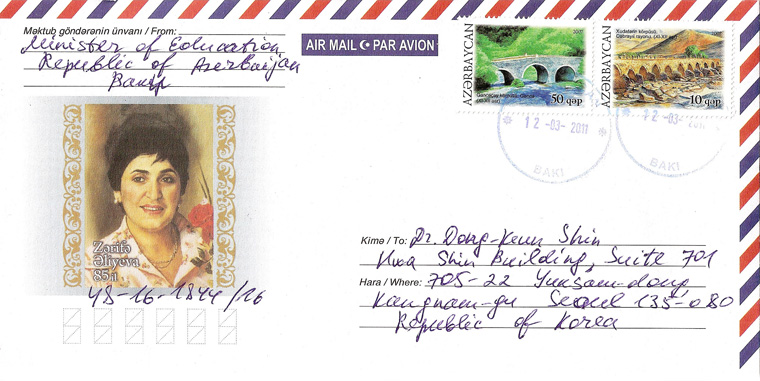 Məktub göndərənin ünvanı / From:
Minister of Education
Republic of Azerbaijan
Baku
AIR MAIL PAR AVION
AZƏRBAYCAN
2007
50 qəp
AZƏRBAYCAN
Xudafərin körpüsü,
2007
10 qəp
12-03-2011
BAKI
12-03-
BAKI
Zərifə
Əliyeva
85 il
48-16-1844/16
Kimə / To: Dr. Dong-Keun Shin
Hwa Shin Building, Suite 701
Hara / Where: 705-22 Yuksam-dong,
Kangnam-gu Seoul 135-080
Republic of Korea